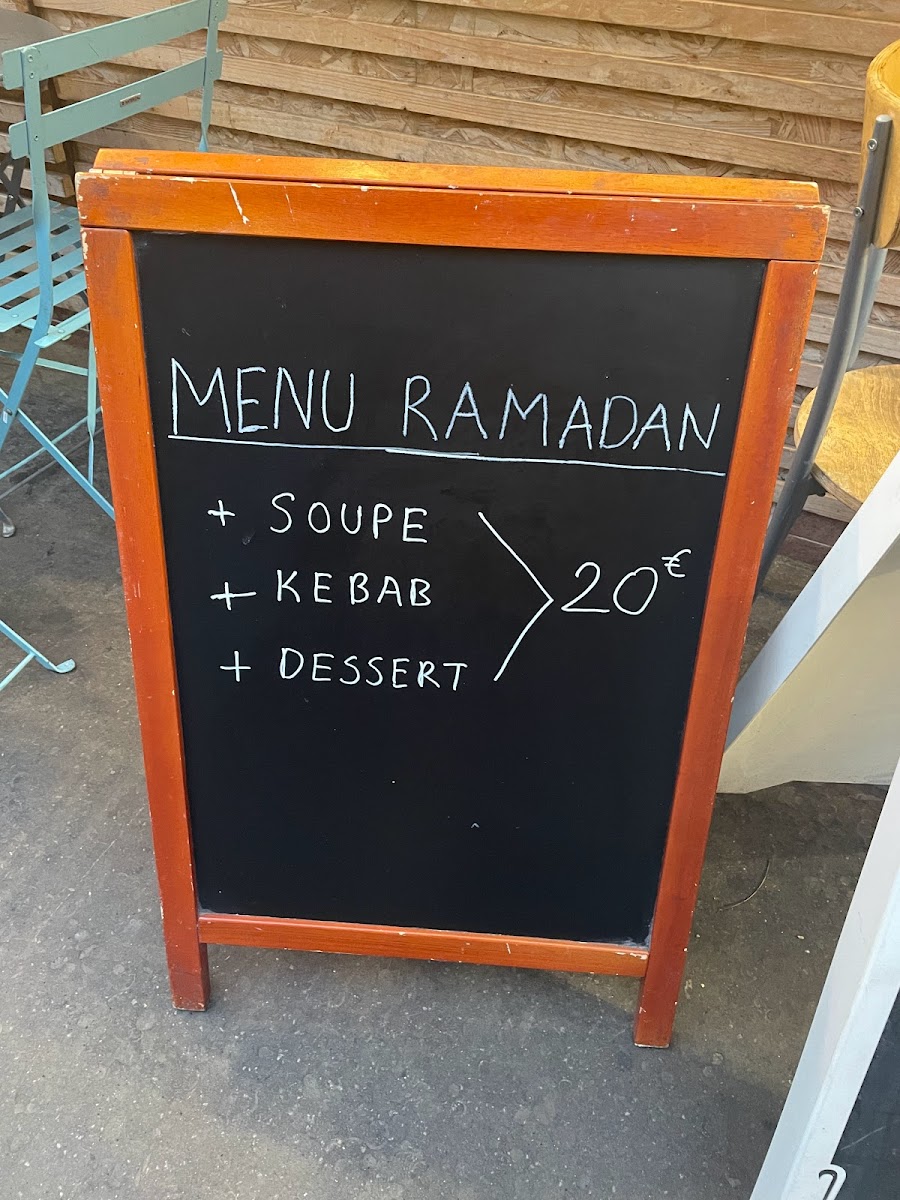 MENU RAMADAN
+ SOUPE
+ KEBAB
+ DESSERT
20€